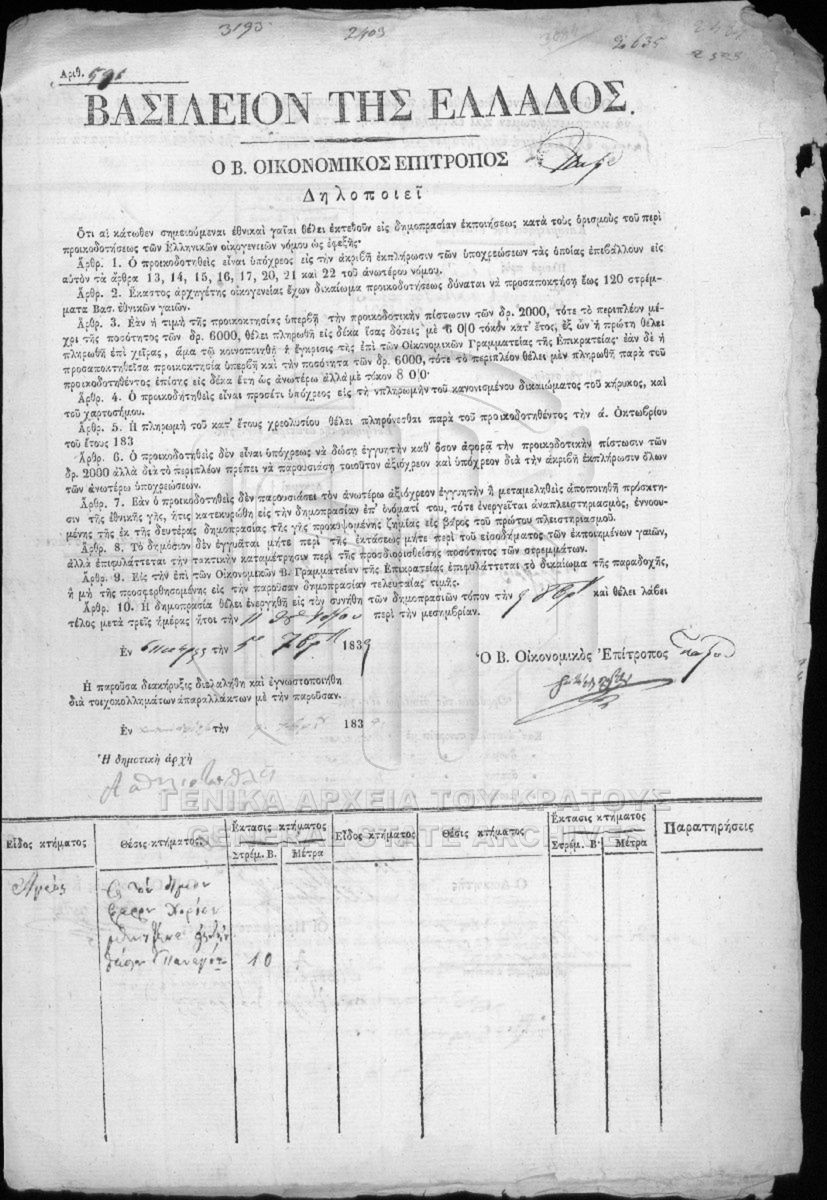 3193 2403 2635
Ἀριθ. 591
ΒΑΣΙΛΕΙΟΝ ΤΗΣ ΕΛΛΑΔΟΣ.
Ο Β. ΟΙΚΟΝΟΜΙΚΟΣ ΕΠΙΤΡΟΠΟΣ
Δηλοποιεῖ
Ὅτι αἱ κάτωθεν σημειούμεναι ἐθνικαὶ γαῖαι θέλει ἐκτεθοῦν εἰς δημοπρασίαν ἐκποιήσεως κατὰ τοὺς ὁρισμοὺς τοῦ περὶ
προικοδοτήσεως τῶν Ἑλληνικῶν οἰκογενειῶν νόμου ὡς ἐφεξῆς·
Ἄρθρ. 1. Ὁ προικοδοτηθεὶς εἶναι ὑπόχρεος εἰς τὴν ἀκριβῆ ἐκπλήρωσιν τῶν ὑποχρεώσεων τὰς ὁποίας ἐπιβάλλουν εἰς
αὐτὸν τὰ ἄρθρα 13, 14, 15, 16, 17, 20, 21 καὶ 22 τοῦ ἀνωτέρου νόμου.
Ἄρθρ. 2. Ἕκαστος ἀρχηγέτης οἰκογενείας ἔχων δικαίωμα προικοδοτήσεως δύναται νὰ προσαποκτήσῃ ἕως 120 στρέμ-
ματα Βασ. ἐθνικῶν γαιῶν.
Ἄρθρ. 3. Ἐὰν ἡ τιμὴ τῆς προικοκτησίας ὑπερβῇ τὴν προικοδοτικὴν πίστωσιν τῶν δρ. 2000, τότε τὸ περιπλέον μέ-
χρι τῆς ποσότητος τῶν δρ. 6000, θέλει πληρωθῆ εἰς δέκα ἴσας δόσεις μὲ 6 0|0 τόκον κατ' ἔτος, ἐξ ὧν ἡ πρώτη θέλει
πληρωθῆ ἐπὶ χεῖρας, ἅμα τῷ κοινοποιηθῇ ἡ ἔγκρισις τῆς ἐπὶ τῶν Οἰκονομικῶν Γραμματείας τῆς Ἐπικρατείας· ἐὰν δὲ ἡ
προσαποκτηθεῖσα προικοκτησία ὑπερβῇ καὶ τὴν ποσότητα τῶν δρ. 6000, τότε τὸ περιπλέον θέλει μὲν πληρωθῆ παρὰ τοῦ
προικοδοτηθέντος ἐπίσης εἰς δέκα ἔτη ὡς ἀνωτέρω ἀλλὰ μὲ τόκον 8 0|0·
Ἄρθρ. 4. Ὁ προικοδοτηθεὶς εἶναι προσέτι ὑπόχρεος εἰς τὴν πληρωμὴν τοῦ κανονισμένου δικαιώματος τοῦ κήρυκος, καὶ
τοῦ χαρτοσήμου.
Ἄρθρ. 5. Ἡ πληρωμὴ τοῦ κατ' ἔτους χρεολυσίου θέλει πληρόνεσθαι παρὰ τοῦ προικοδοτηθέντος τὴν ά. Ὀκτωβρίου
τοῦ ἔτους 183
Ἄρθρ. 6. Ὁ προικοδοτηθεὶς δὲν εἶναι ὑπόχρεως νὰ δώσῃ ἐγγυητὴν καθ' ὅσον ἀφορᾷ τὴν προικοδοτικὴν πίστωσιν τῶν
δρ. 2000 ἀλλὰ διὰ τὸ περιπλέον πρέπει νὰ παρουσιάσῃ τοιοῦτον ἀξιόχρεον καὶ ὑπόχρεον διὰ τὴν ἀκριβῆ ἐκπλήρωσιν ὅλων
τῶν ἀνωτέρω ὑποχρεώσεων.
Ἄρθρ. 7. Ἐὰν ὁ προικοδοτηθεὶς δὲν παρουσιάσει τὸν ἀνωτέρω ἀξιόχρεον ἐγγυητὴν ἢ μεταμεληθεὶς ἀποποιηθῇ πρόσκτη-
σιν τῆς ἐθνικῆς γῆς, ἥτις κατεκυρώθη εἰς τὴν δημοπρασίαν ἐπ' ὀνόματί του, τότε ἐνεργεῖται ἀναπλειστηριασμὸς, ἐννοου-
μένης τῆς ἐκ τῆς δευτέρας δημοπρασίας τῆς γῆς προκυψομένης ζημίας εἰς βάρος τοῦ πρώτου πλειστηριασμοῦ.
Ἄρθρ. 8. Τὸ δημόσιον δὲν ἐγγυᾶται μήτε περὶ τῆς ἐκτάσεως μήτε περὶ τοῦ εἰσοδήματος τῶν ἐκποιημένων γαιῶν,
ἀλλὰ ἐπιφυλάττεται τὴν τακτικὴν καταμέτρησιν περὶ τῆς προσδιορισθείσης ποσότητος τῶν στρεμμάτων.
Ἄρθρ. 9. Εἰς τὴν ἐπὶ τῶν Οἰκονομικῶν Β. Γραμματείαν τῆς Ἐπικρατείας ἐπιφυλάττεται τὸ δικαίωμα τῆς παραδοχῆς,
ἢ μὴ τῆς προσφερθησομένης εἰς τὴν παροῦσαν δημοπρασίαν τελευταίας τιμῆς.
Ἄρθρ. 10. Ἡ δημοπρασία θέλει ἐνεργηθῆ εἰς τὸν συνήθη τῶν δημοπρασιῶν τόπον τὴν 9 8βρ καὶ θέλει λάβει
τέλος μετὰ τρεῖς ἡμέρας ἤτοι τὴν 11 περὶ τὴν μεσημβρίαν.
Ἐν τὴν 5 7βρ 1839
Ὁ Β. Οἰκονομικὸς Ἐπίτροπος
Ἡ παροῦσα διακήρυξις διελαλήθη καὶ ἐγνωστοποιήθη
διὰ τοιχοκολλημάτων ἀπαραλλάκτων μὲ τὴν παροῦσαν.
Ἐν τὴν 183
Ἡ δημοτικὴ ἀρχὴ
ΓΕΝΙΚΑ ΑΡΧΕΙΑ ΤΟΥ ΚΡΑΤΟΥΣ
GENERAL STATE ARCHIVES
Εἶδος κτήματος Θέσις κτήματος Ἔκτασις κτήματος Εἶδος κτήματος Θέσις κτήματος Ἔκτασις κτήματος Παρατηρήσεις
Στρέμ. Β. Μέτρα Στρέμ. Β. Μέτρα
Ἀγρὸς
10